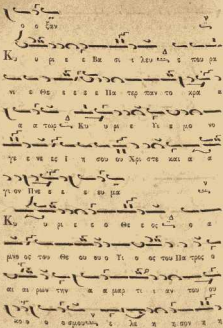 ο ο ξαν
Κυ υ ρι ε Βα σι λευ ε που ρα
νι ε Θε ε ε ε Πα τερ παν το κρα α
α α τωρ Κυ υ ρι ε Υι ε μο νο
γε ε νε ες Ι η σου ου Χρι στε και α α
γι ον Πνε ε ε ευ μα
Κυ υ ρι ε ε ο Θε ε ος ο α
μνο ος του Θε ου ου ο Υι ο ος του Πα τρος ο
αι αι ρων την α α μαρ τι αν του ου
κο ο ο σμου ε λε η η σον